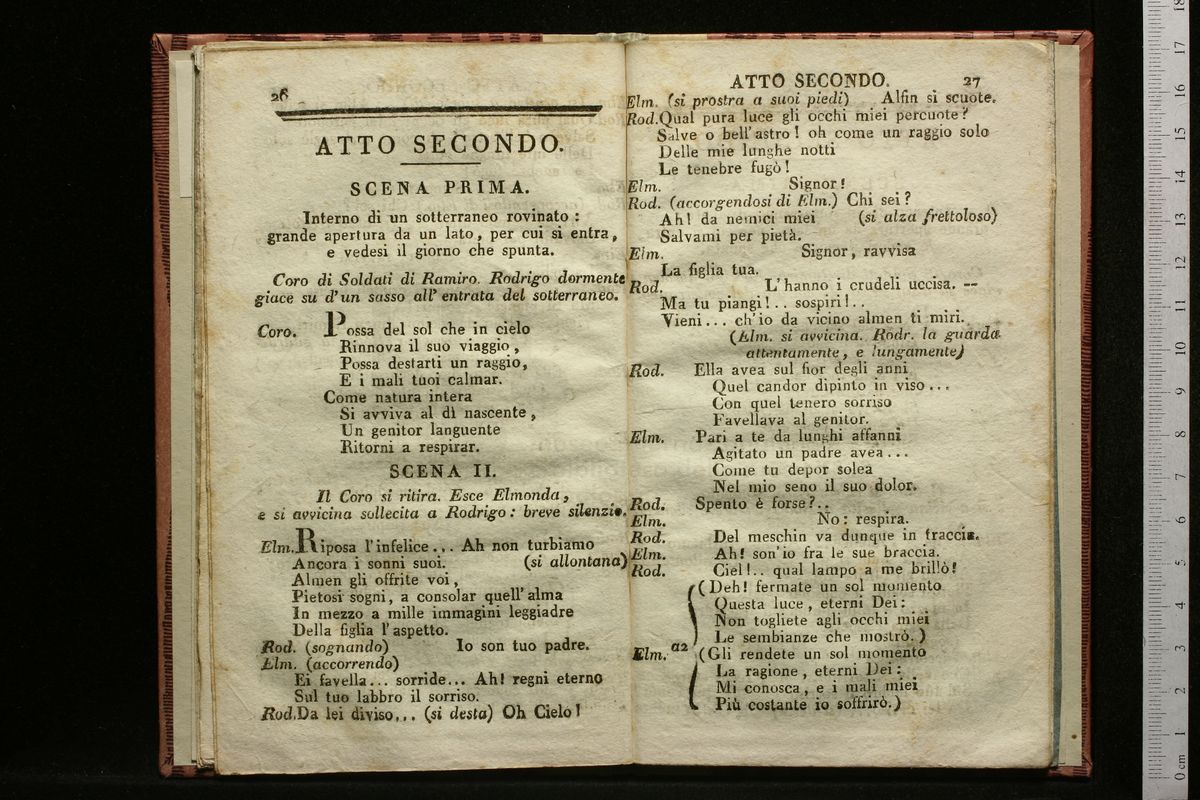 26
ATTO SECONDO.
SCENA PRIMA.
Interno di un sotterraneo rovinato :
grande apertura da un lato, per cui si entra,
e vedesi il giorno che spunta.
Coro di Soldati di Ramiro. Rodrigo dormente
giace su d'un sasso all' entrata del sotterraneo.
Coro. Possa del sol che in cielo
Rinnova il suo viaggio,
Possa destarti un raggio,
E i mali tuoi calmar.
Come natura intera
Si avviva al dì nascente,
Un genitor languente
Ritorni a respirar.
SCENA II.
Il Coro si ritira. Esce Elmonda,
e si avvicina sollecita a Rodrigo: breve silenzio.
Elm. Riposa l'infelice... Ah non turbiamo
Ancora i sonni suoi. (si allontana)
Almen gli offrite voi,
Pietosi sogni, a consolar quell' alma
In mezzo a mille immagini leggiadre
Della figlia l'aspetto.
Rod. (sognando) Io son tuo padre.
Elm. (accorrendo)
Ei favella... sorride... Ah! regni eterno
Sul tuo labbro il sorriso.
Rod. Da lei diviso... (si desta) Oh Cielo!
ATTO SECONDO. 27
Elm. (si prostra a suoi piedi) Alfin si scuote.
Rod. Qual pura luce gli occhi miei percuote?
Salve o bell' astro! oh come un raggio solo
Delle mie lunghe notti
Le tenebre fugò!
Elm. Signor!
Rod. (accorgendosi di Elm.) Chi sei?
Ah! da nemici miei (si alza frettoloso)
Salvami per pietà.
Elm. Signor, ravvisa
La figlia tua.
Rod. L'hanno i crudeli uccisa. —
Ma tu piangi!.. sospiri!..
Vieni... ch'io da vicino almen ti miri.
(Elm. si avvicina. Rodr. la guarda
attentamente, e lungamente)
Rod. Ella avea sul fior degli anni
Quel candor dipinto in viso...
Con quel tenero sorriso
Favellava al genitor.
Elm. Pari a te da lunghi affanni
Agitato un padre avea...
Come tu depor solea
Nel mio seno il suo dolor.
Rod. Spento è forse?..
Elm. No: respira.
Rod. Del meschin va dunque in traccia.
Elm. Ah! son'io fra le sue braccia.
Rod. Ciel!.. qual lampo a me brillò!
(Deh! fermate un sol momento
Questa luce, eterni Dei:
Non togliete agli occhi miei
Le sembianze che mostrò.)
a2
Elm. (Gli rendete un sol momento
La ragione, eterni Dei:
Mi conosca, e i mali miei
Più costante io soffrirò.)
0 cm 1 2 3 4 5 6 7 8 9 10 11 12 13 14 15 16 17 18